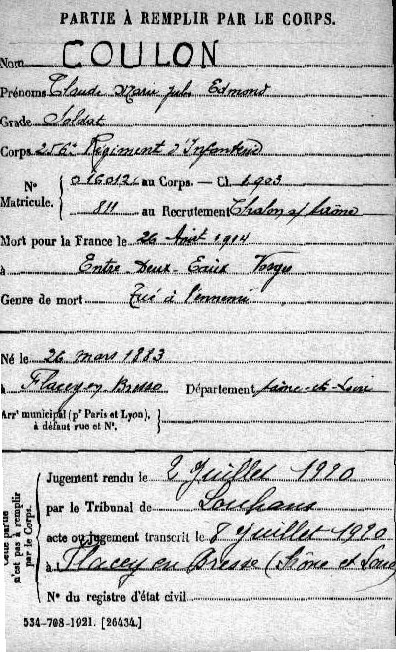 PARTIE À REMPLIR PAR LE CORPS.
Nom COULON
Prénoms Claude Marie Jules Edmond
Grade Soldat
Corps 256e Régiment d'Infanterie
No Matricule. { 016012 au Corps. — Cl. 1903
811 au Recrutement Chalon s/ Saône
Mort pour la France le 26 Août 1914
à Entre Deux-Eaux Vosges
Genre de mort Tué à l'ennemi
Né le 26 mars 1883
à Flacey en Bresse Département Saône-et-Loire
Arrt municipal (pr Paris et Lyon), }
à défaut rue et No.
Cette partie n'est pas à remplir par le Corps.
Jugement rendu le 2 Juillet 1920
par le Tribunal de Louhans
acte ou jugement transcrit le 8 Juillet 1920
à Flacey en Bresse (Saône et Loire)
No du registre d'état civil
534-708-1921. [26434.]